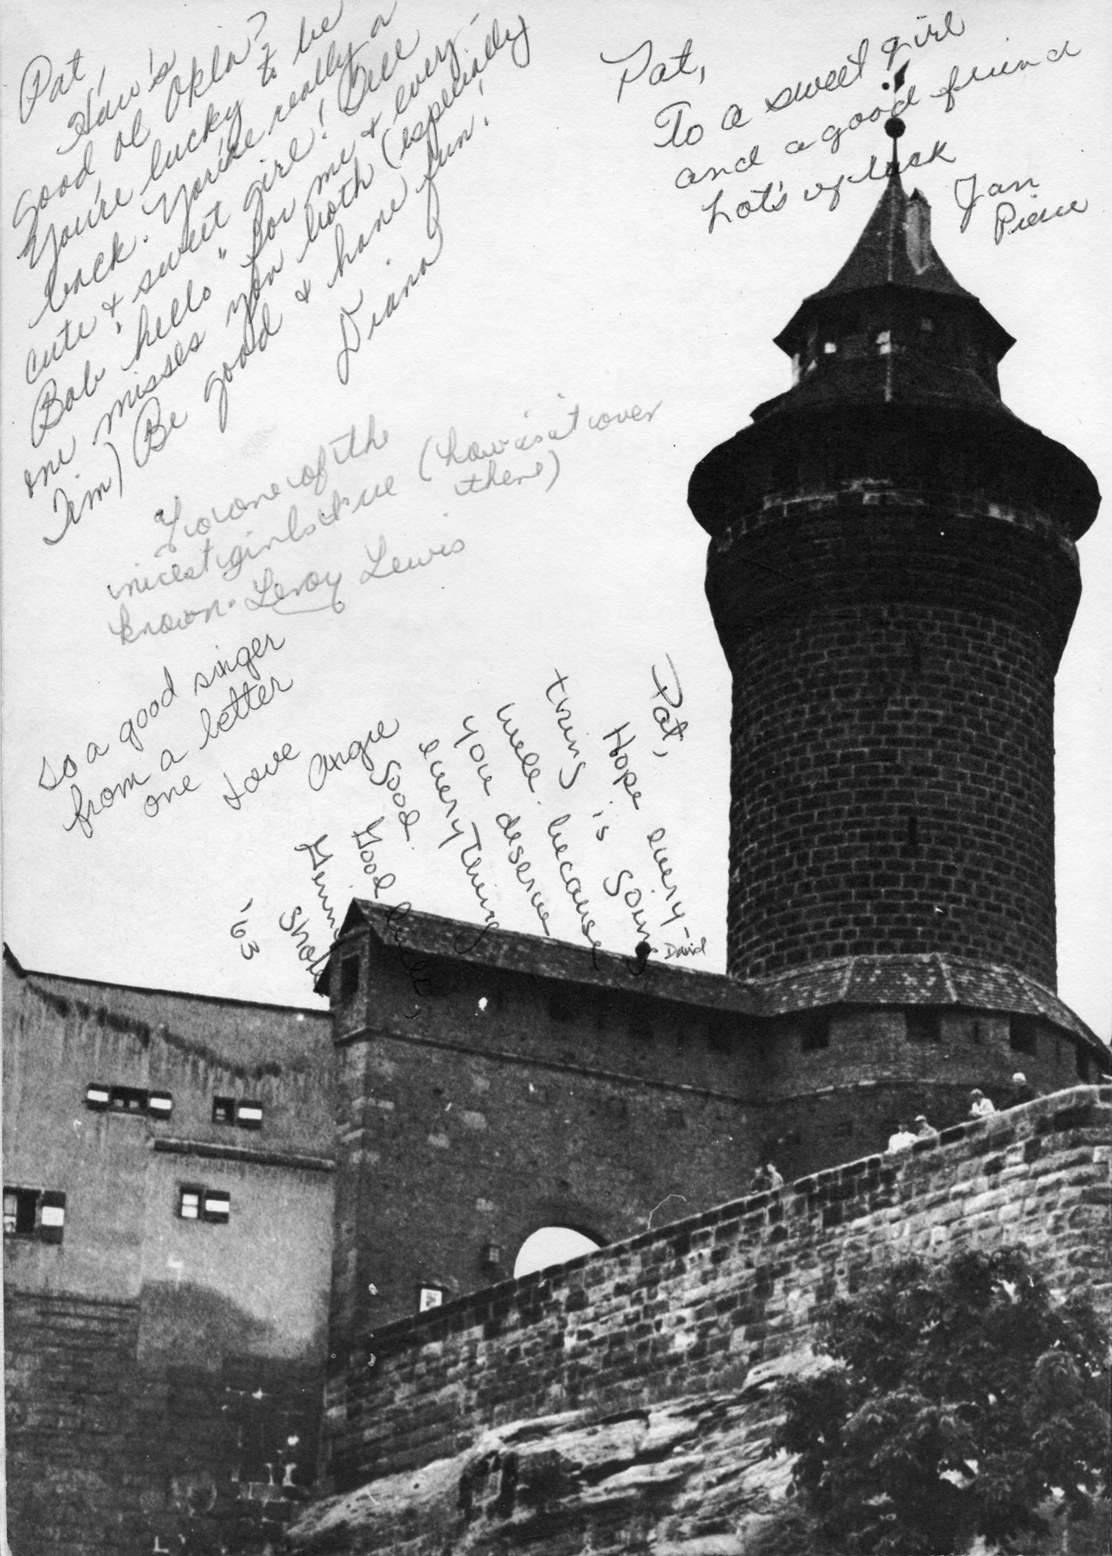 Pat,
How's
good ol Okla?
You're lucky to be
back. You're really a
cute & sweet girl! Tell
Bob "hello" for me & every-
one misses you both (especially
Tim) Be good & have fun!
Diana
Pat,
To a sweet girl
and a good friend
Lot's of luck
Jan
Pierce
To one of the
nicest girls I've (how is it over
there)
known. Leroy Lewis
To a good singer
from a better
one
Love
Angie
Pat,
Hope every-
thing is going
well, because
you deserve
everything
good.
Good luck,
Sholl
'63
David